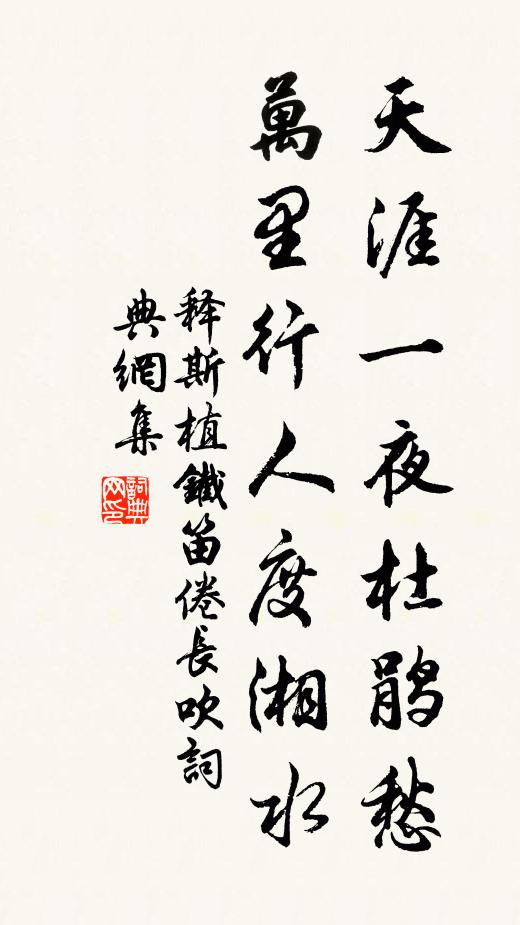 天涯一夜杜鹃愁
萬里行人度湘水
释斯植鐵笛倦長吹詞
典網集
詞典网印